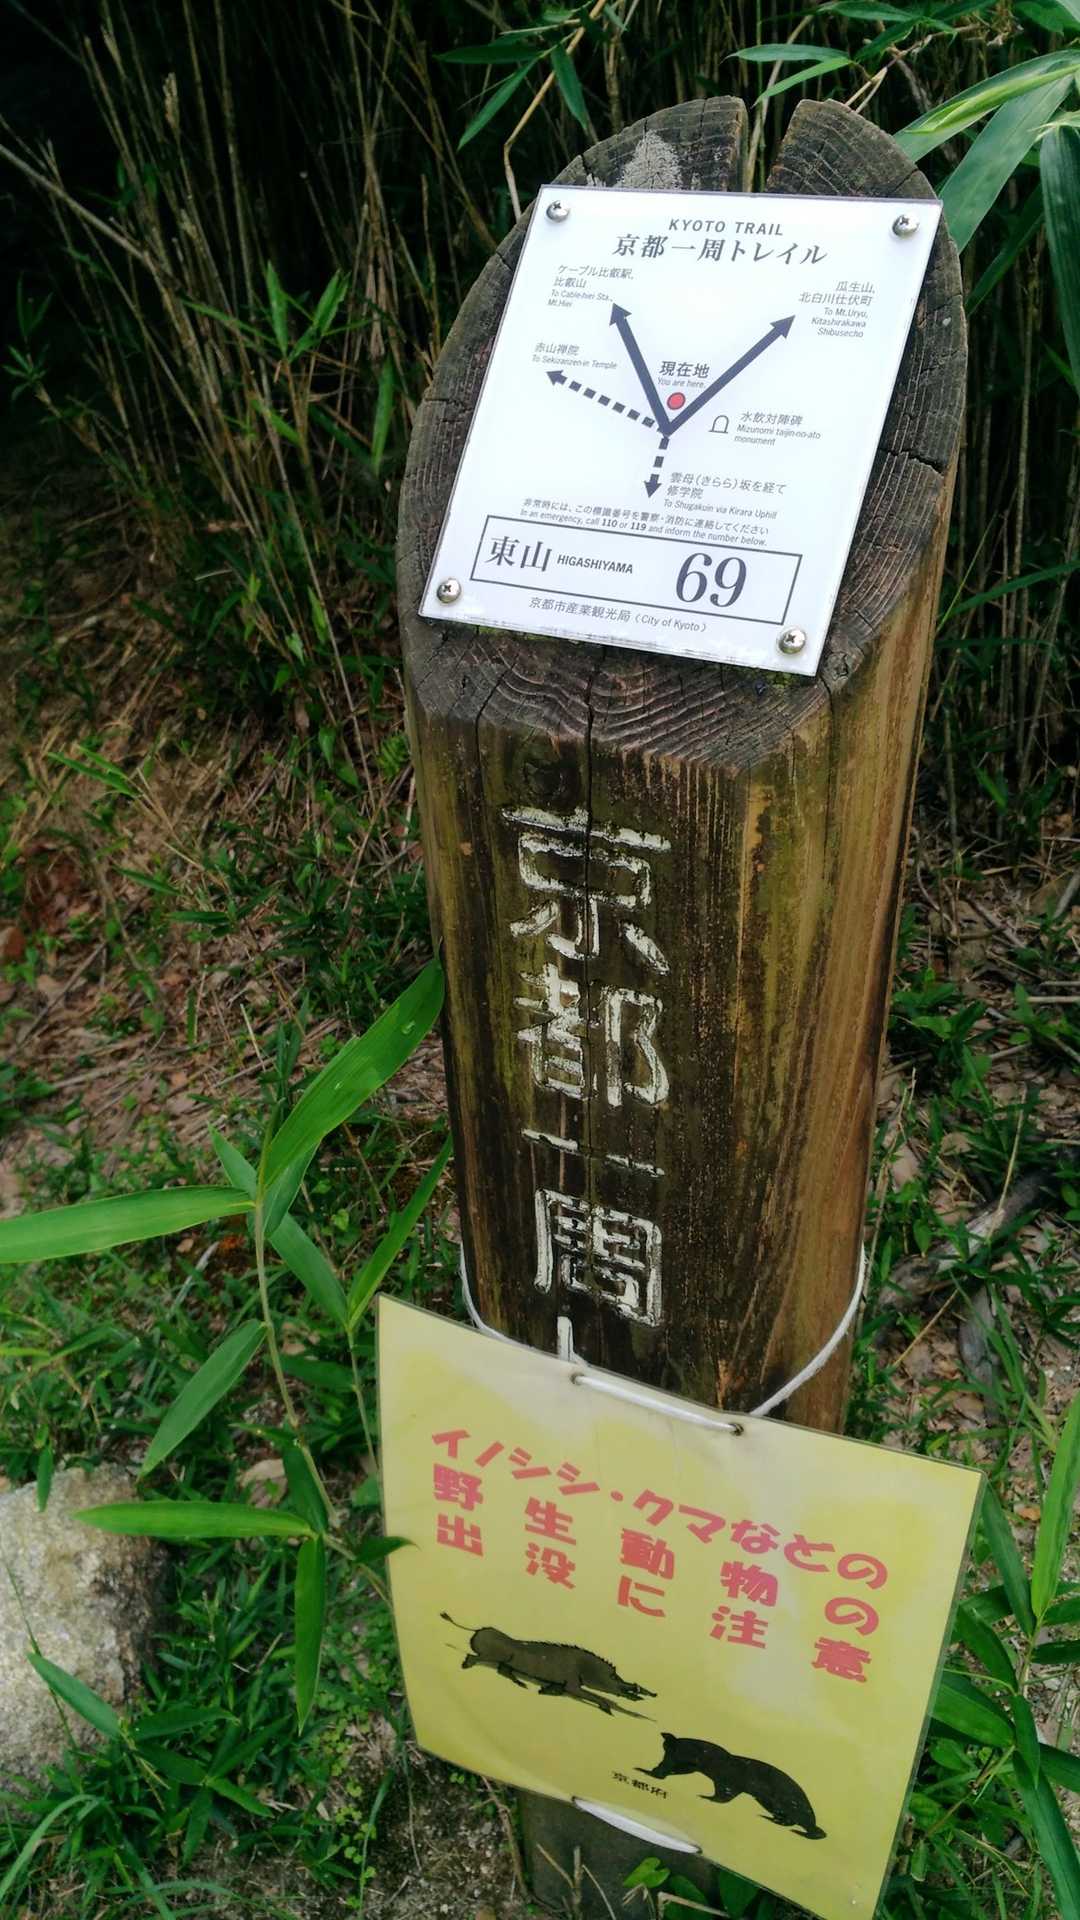 KYOTO TRAIL
京都一周トレイル
ケーブル比叡駅,
比叡山
To Cable-hiei Sta.,
Mt.Hiei
瓜生山,
北白川仕伏町
To Mt.Uryu,
Kitashirakawa
Shibusecho
赤山禅院
To Sekizanzen-in Temple
現在地
You are here.
水飲対陣碑
Mizunomi taijin-no-ato
monument
雲母(きらら)坂を経て
修学院
To Shugakuin via Kirara Uphill
非常時には、この標識番号を警察・消防に連絡してください
In an emergency, call 110 or 119 and inform the number below.
東山 HIGASHIYAMA 69
京都市産業観光局 (City of Kyoto)
京都一周ト
イノシシ・クマなどの
野生動物の
出没に注意
京都府